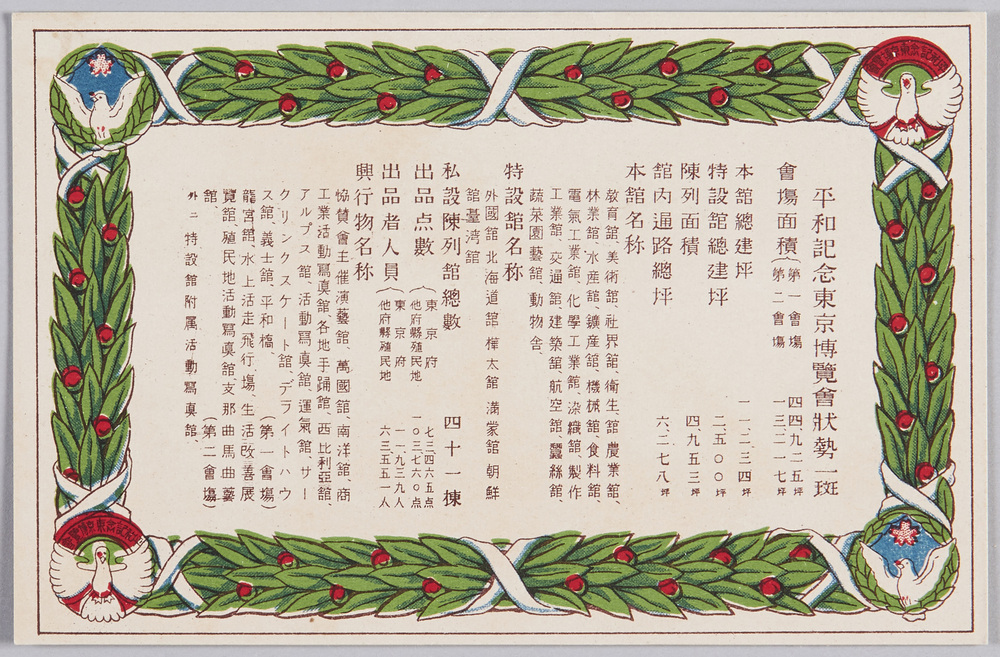 平和記念東京博覽會狀勢一斑
會塲面積(第一會塲 四四、九二五坪
第二會塲 一三、二一七坪
本舘總建坪 一一、二三四坪
特設舘總建坪 二、五〇〇坪
陳列面積 四、九五三坪
舘內通路總坪 六、二七八坪
本舘名称
敎育舘、美術舘、社界舘、衛生舘、農業舘、
林業舘、水産舘、鑛産舘、機械舘、食料舘、
電氣工業舘、化學工業舘、染織舘、製作
工業舘、交通舘、建築舘、航空舘、蠶絲舘、
蔬菜園藝舘、動物舍、
特設舘名称
外國舘 北海道舘 樺太舘 滿蒙舘 朝鮮
舘 臺湾舘
私設陳列舘總數 四十一棟
出品点數(東京府 七三四六五点
他府縣殖民地 一〇三七六〇点
出品者人員(東京府 一一九三九人
他府縣殖民地 六三五五一人
興行物名称
協賛會主催演藝舘、萬國舘、南洋舘、商
工業活動寫眞舘、各地手踊舘、西比利亞舘、
アルプス舘、活動寫眞舘、運氣舘、サー
クリンクスケート舘、デライトハウ
ス舘、義士舘、平和橋、 (第一會塲)
龍宮舘、水上活走飛行塲、生活改善展
覽舘、殖民地活動寫眞舘、支那曲馬曲藝
舘、 (第二會塲)
外ニ 特設舘附属活動寫眞舘、